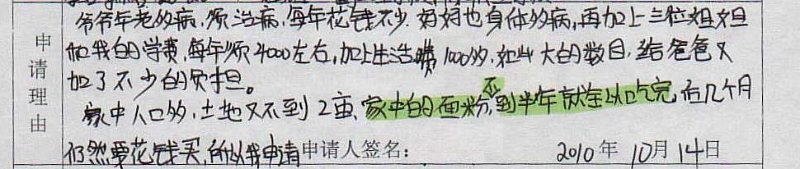 爷爷年老多病,须治病,每年花钱不少,妈妈也身体多病,再加上三位姐姐
和我的学费,每年须4000左右,加上生活费1000多,如此大的数目,给爸爸又
加了不少的负担。
家中人口多,土地又不到2亩,家中的面粉否到半年就全以吃完,后几个月
仍然要花钱买,所以我申请申请人签名: 2010年10月14日
申请理由